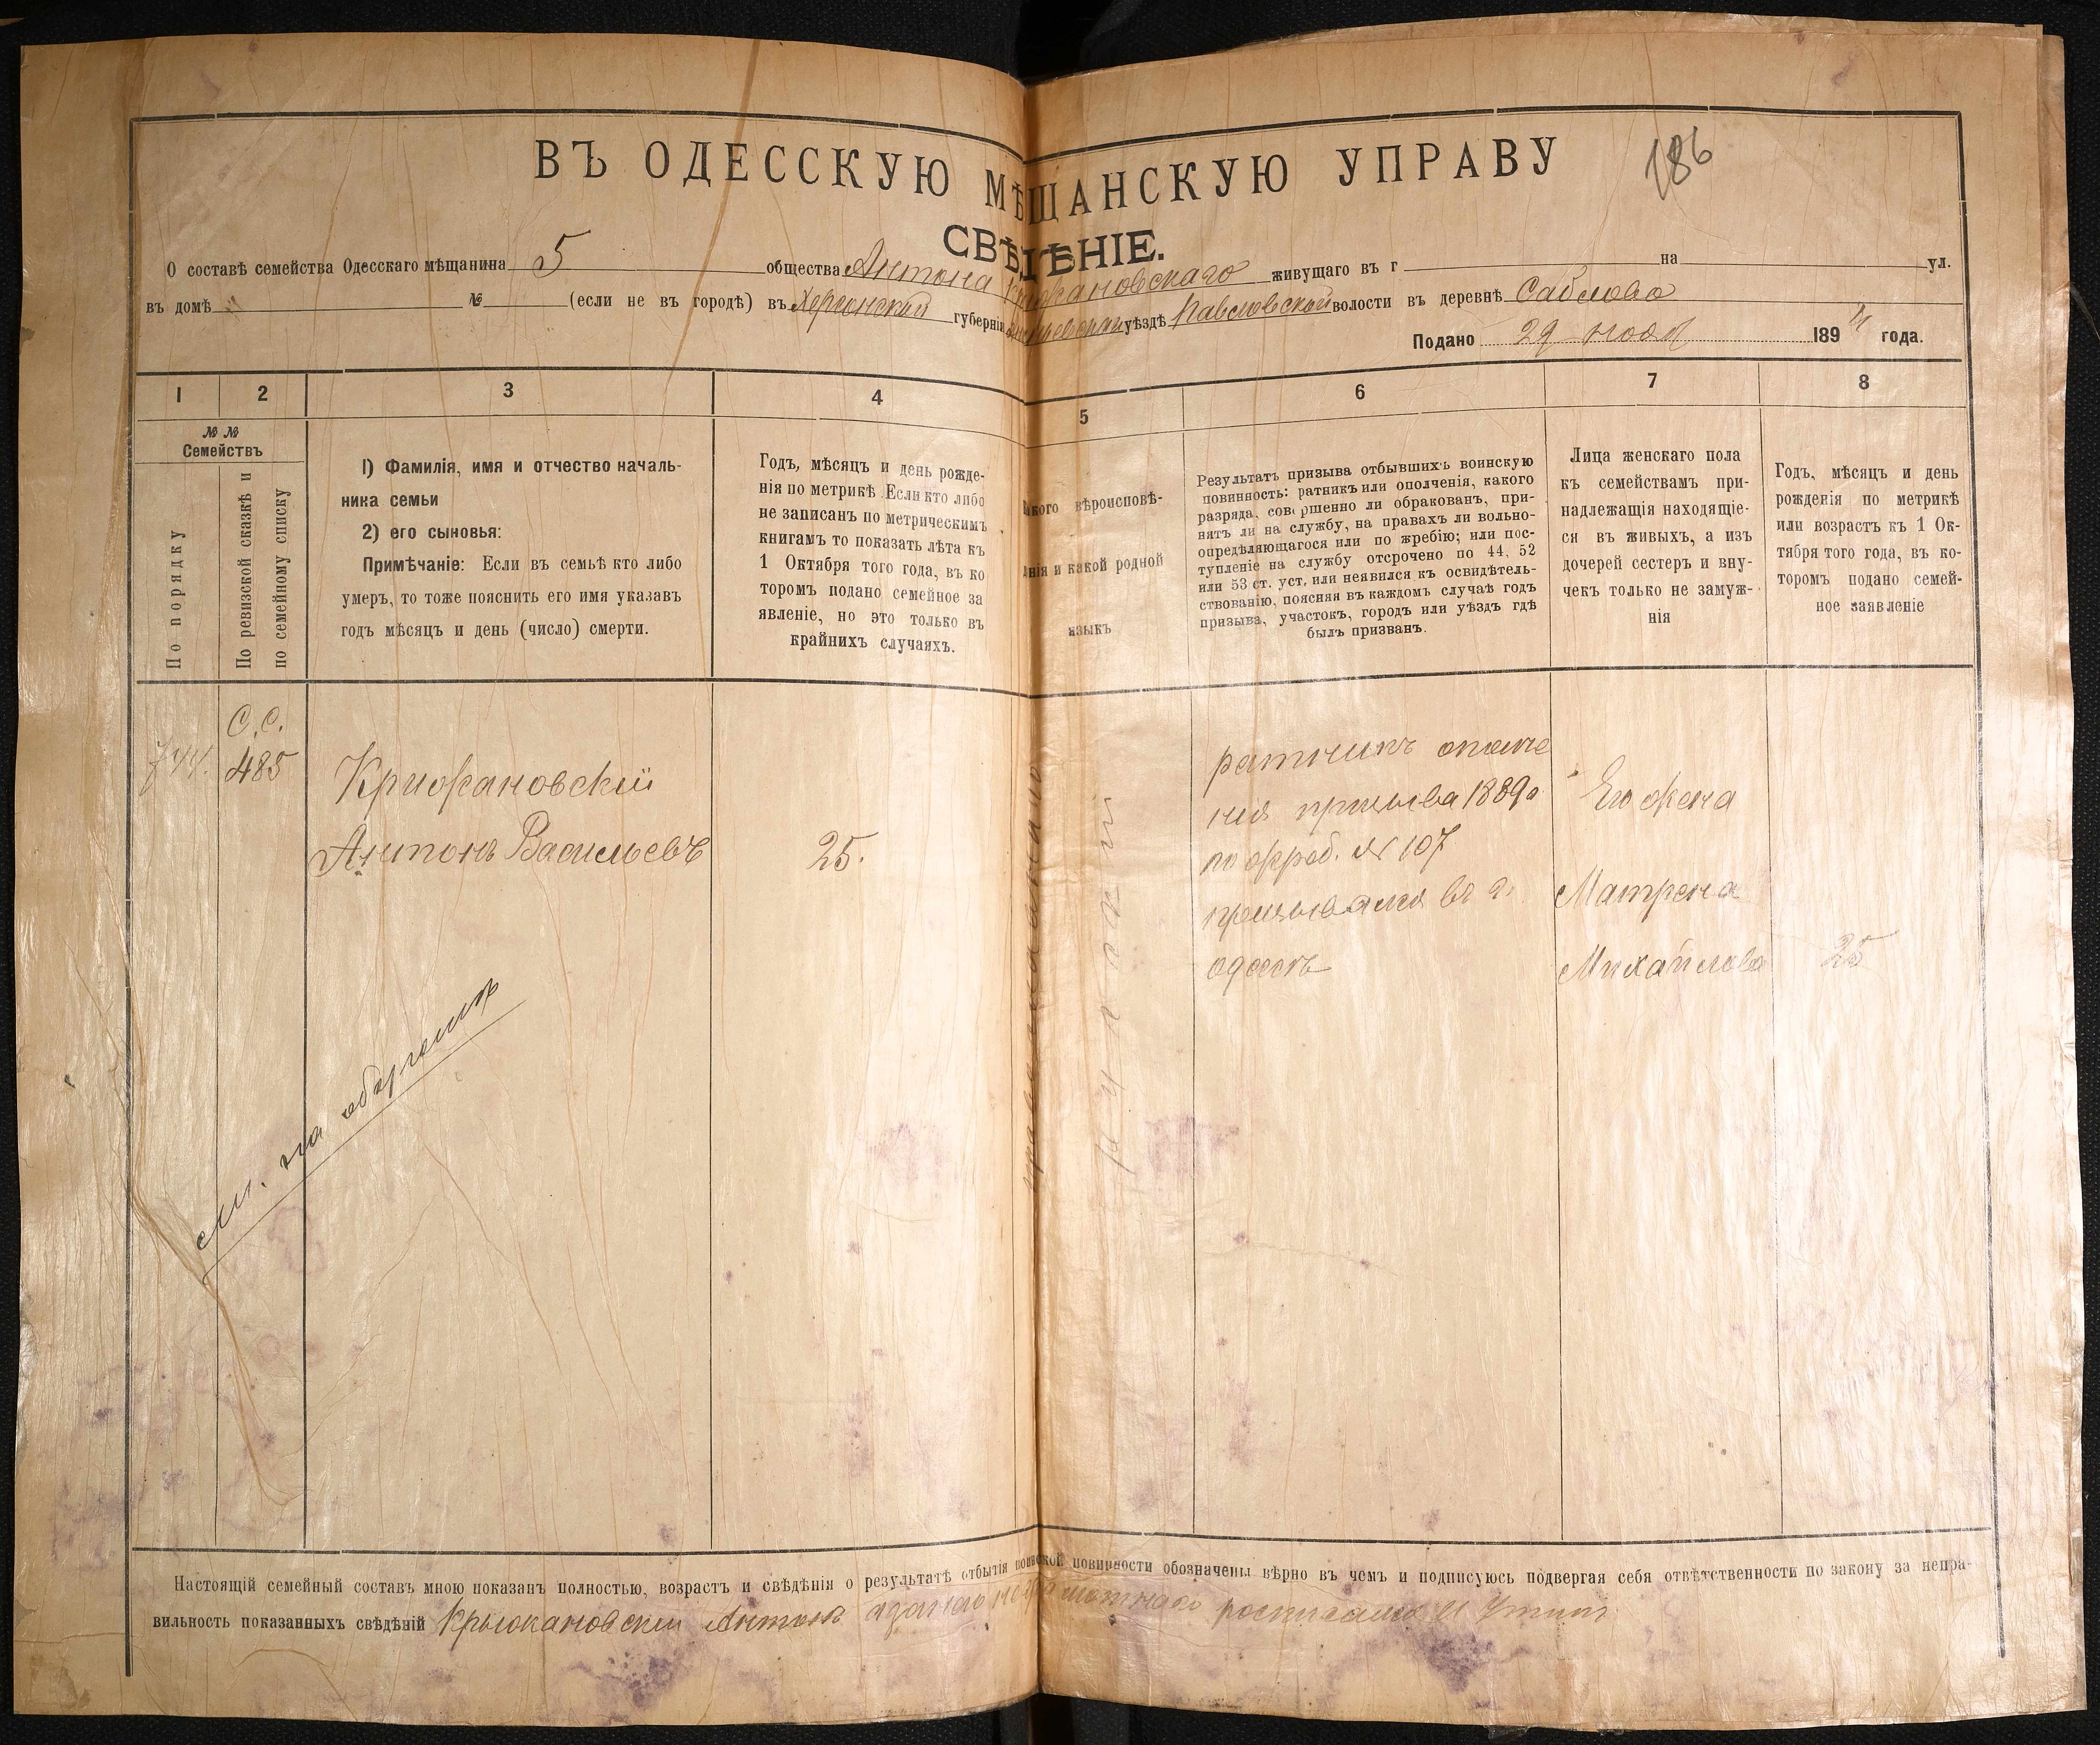 ВЪ ОДЕССКУЮ МѢЩАНСКУЮ УПРАВУ
186
СВѢДѢНІЕ.
О составѣ семейства Одесскаго мѣщанина 5 общества Антона Крижановскаго живущаго въ г на ул.
въ домѣ № (если не въ городѣ) въ Херсонской губерніи уѣздѣ Павловской волости въ деревнѣ Саблово
Подано 29 ноя 189 года.
1 2 3 4 5 6 7 8
№ №
Семействъ
По порядку
По ревизской сказкѣ и
по семейному списку
1) Фамилія, имя и отчество началь-
ника семьи
2) его сыновья:
Примѣчаніе: Если въ семьѣ кто либо
умеръ, то тоже пояснить его имя указавъ
годъ мѣсяцъ и день (число) смерти.
Годъ, мѣсяцъ и день рожде-
нія по метрикѣ. Если кто либо
не записанъ по метрическимъ
книгамъ то показать лѣта къ
1 Октября того года, въ ко
торомъ подано семейное за
явленіе, но это только въ
крайнихъ случаяхъ.
кого вѣроисповѣ-
нія и какой родной
языкъ
Результатъ призыва отбывшихъ воинскую
повинность: ратникъ или ополченія, какого
разряда, совершенно ли обракованъ, при-
нятъ ли на службу, на правахъ ли вольно-
опредѣляющагося или по жребію; или пос-
тупленіе на службу отсрочено по 44, 52
или 53 ст. уст. или неявился къ освидѣтель-
ствованію, поясняя въ каждомъ случаѣ годъ
призыва, участокъ, городъ или уѣздъ гдѣ
былъ призванъ.
Лица женскаго пола
къ семействамъ при-
надлежащія находящіе-
ся въ живыхъ, а изъ
дочерей сестеръ и вну-
чекъ только не замуж-
нія
Годъ, мѣсяцъ и день
рожденія по метрикѣ
или возрастъ къ 1 Ок-
тября того года, въ ко-
торомъ подано семей-
ное заявленіе
744.
С.С.
485
Крижановскій
Антонъ Васильевъ
25.
ратникъ ополче
нія призыва 1889 г
по жреб. № 107
призывался въ г.
одессѣ
Его жена
Матрена
Михайлова
25
см. на оборотѣ
Настоящій семейный составъ мною показанъ полностью, возрастъ и свѣдѣнія о результатѣ отбытія воинской повинности обозначены вѣрно въ чемъ и подписуюсь подвергая себя отвѣтственности по закону за непра-
вильность показанныхъ свѣдѣній Крыжановскій Антонъ